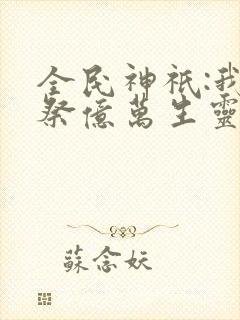 全民神祇:我
祭億萬生靈
蘇念妖